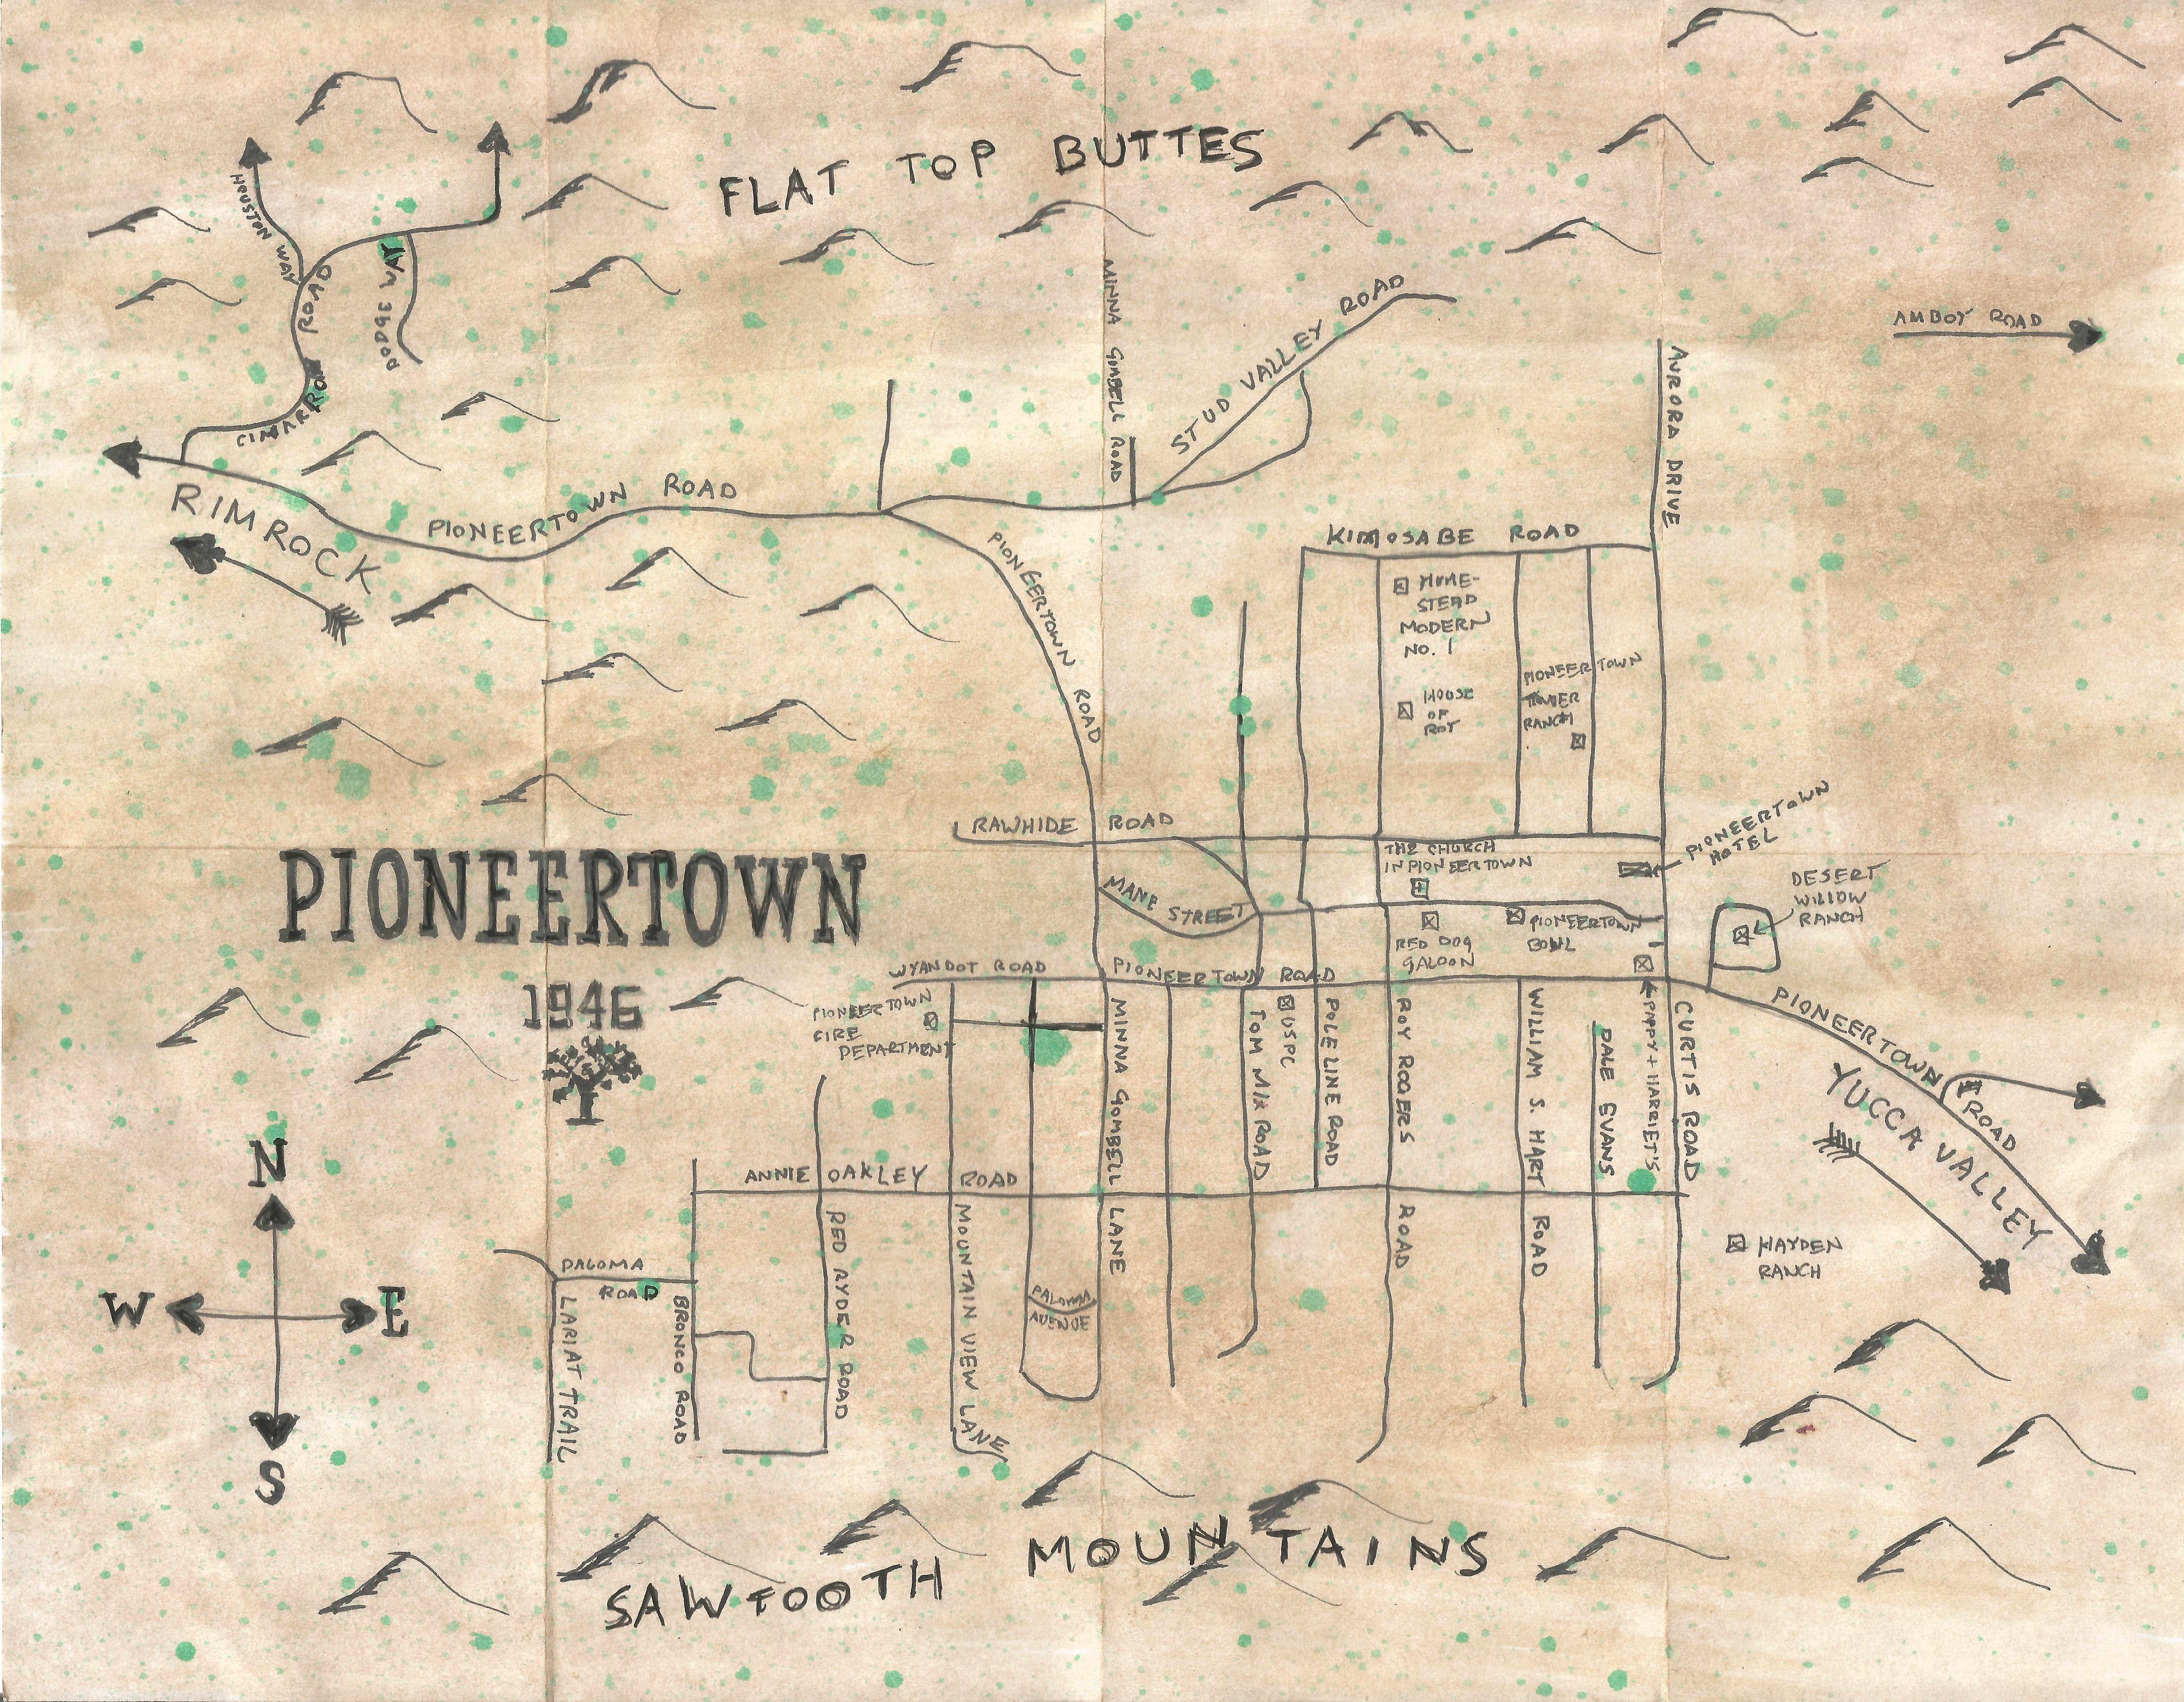 FLAT TOP BUTTES
HOUSTON WAY
DODGE WAY
CIMARRON ROAD
RIMROCK
PIONEERTOWN ROAD
MINNA GOMBELL ROAD
STUD VALLEY ROAD
AMBOY ROAD
AURORA DRIVE
PIONEERTOWN ROAD
KIMOSABE ROAD
HOME-
STEAD
MODERN
NO. 1
HOUSE
OF
ROY
PIONEERTOWN
TOWER
RANCH
RAWHIDE ROAD
MANE STREET
THE CHURCH
IN PIONEERTOWN
PIONEERTOWN
HOTEL
DESERT
WILLOW
RANCH
RED DOG
SALOON
PIONEERTOWN
BOWL
PIONEERTOWN
1946
WYANDOT ROAD
PIONEERTOWN ROAD
PIONEERTOWN
FIRE
DEPARTMENT
MINNA GOMBELL LANE
TOM MIX ROAD
USPC
POLE LINE ROAD
ROY ROGERS ROAD
WILLIAM S. HART ROAD
DALE EVANS
PAPPY + HARRIET'S
CURTIS ROAD
PIONEERTOWN ROAD
YUCCA VALLEY
ANNIE OAKLEY ROAD
HAYDEN
RANCH
PALOMA
ROAD
LARIAT TRAIL
BRONCO ROAD
RED RYDER ROAD
MOUNTAIN VIEW LANE
PALOMA
AVENUE
N
W
E
S
SAWTOOTH MOUNTAINS